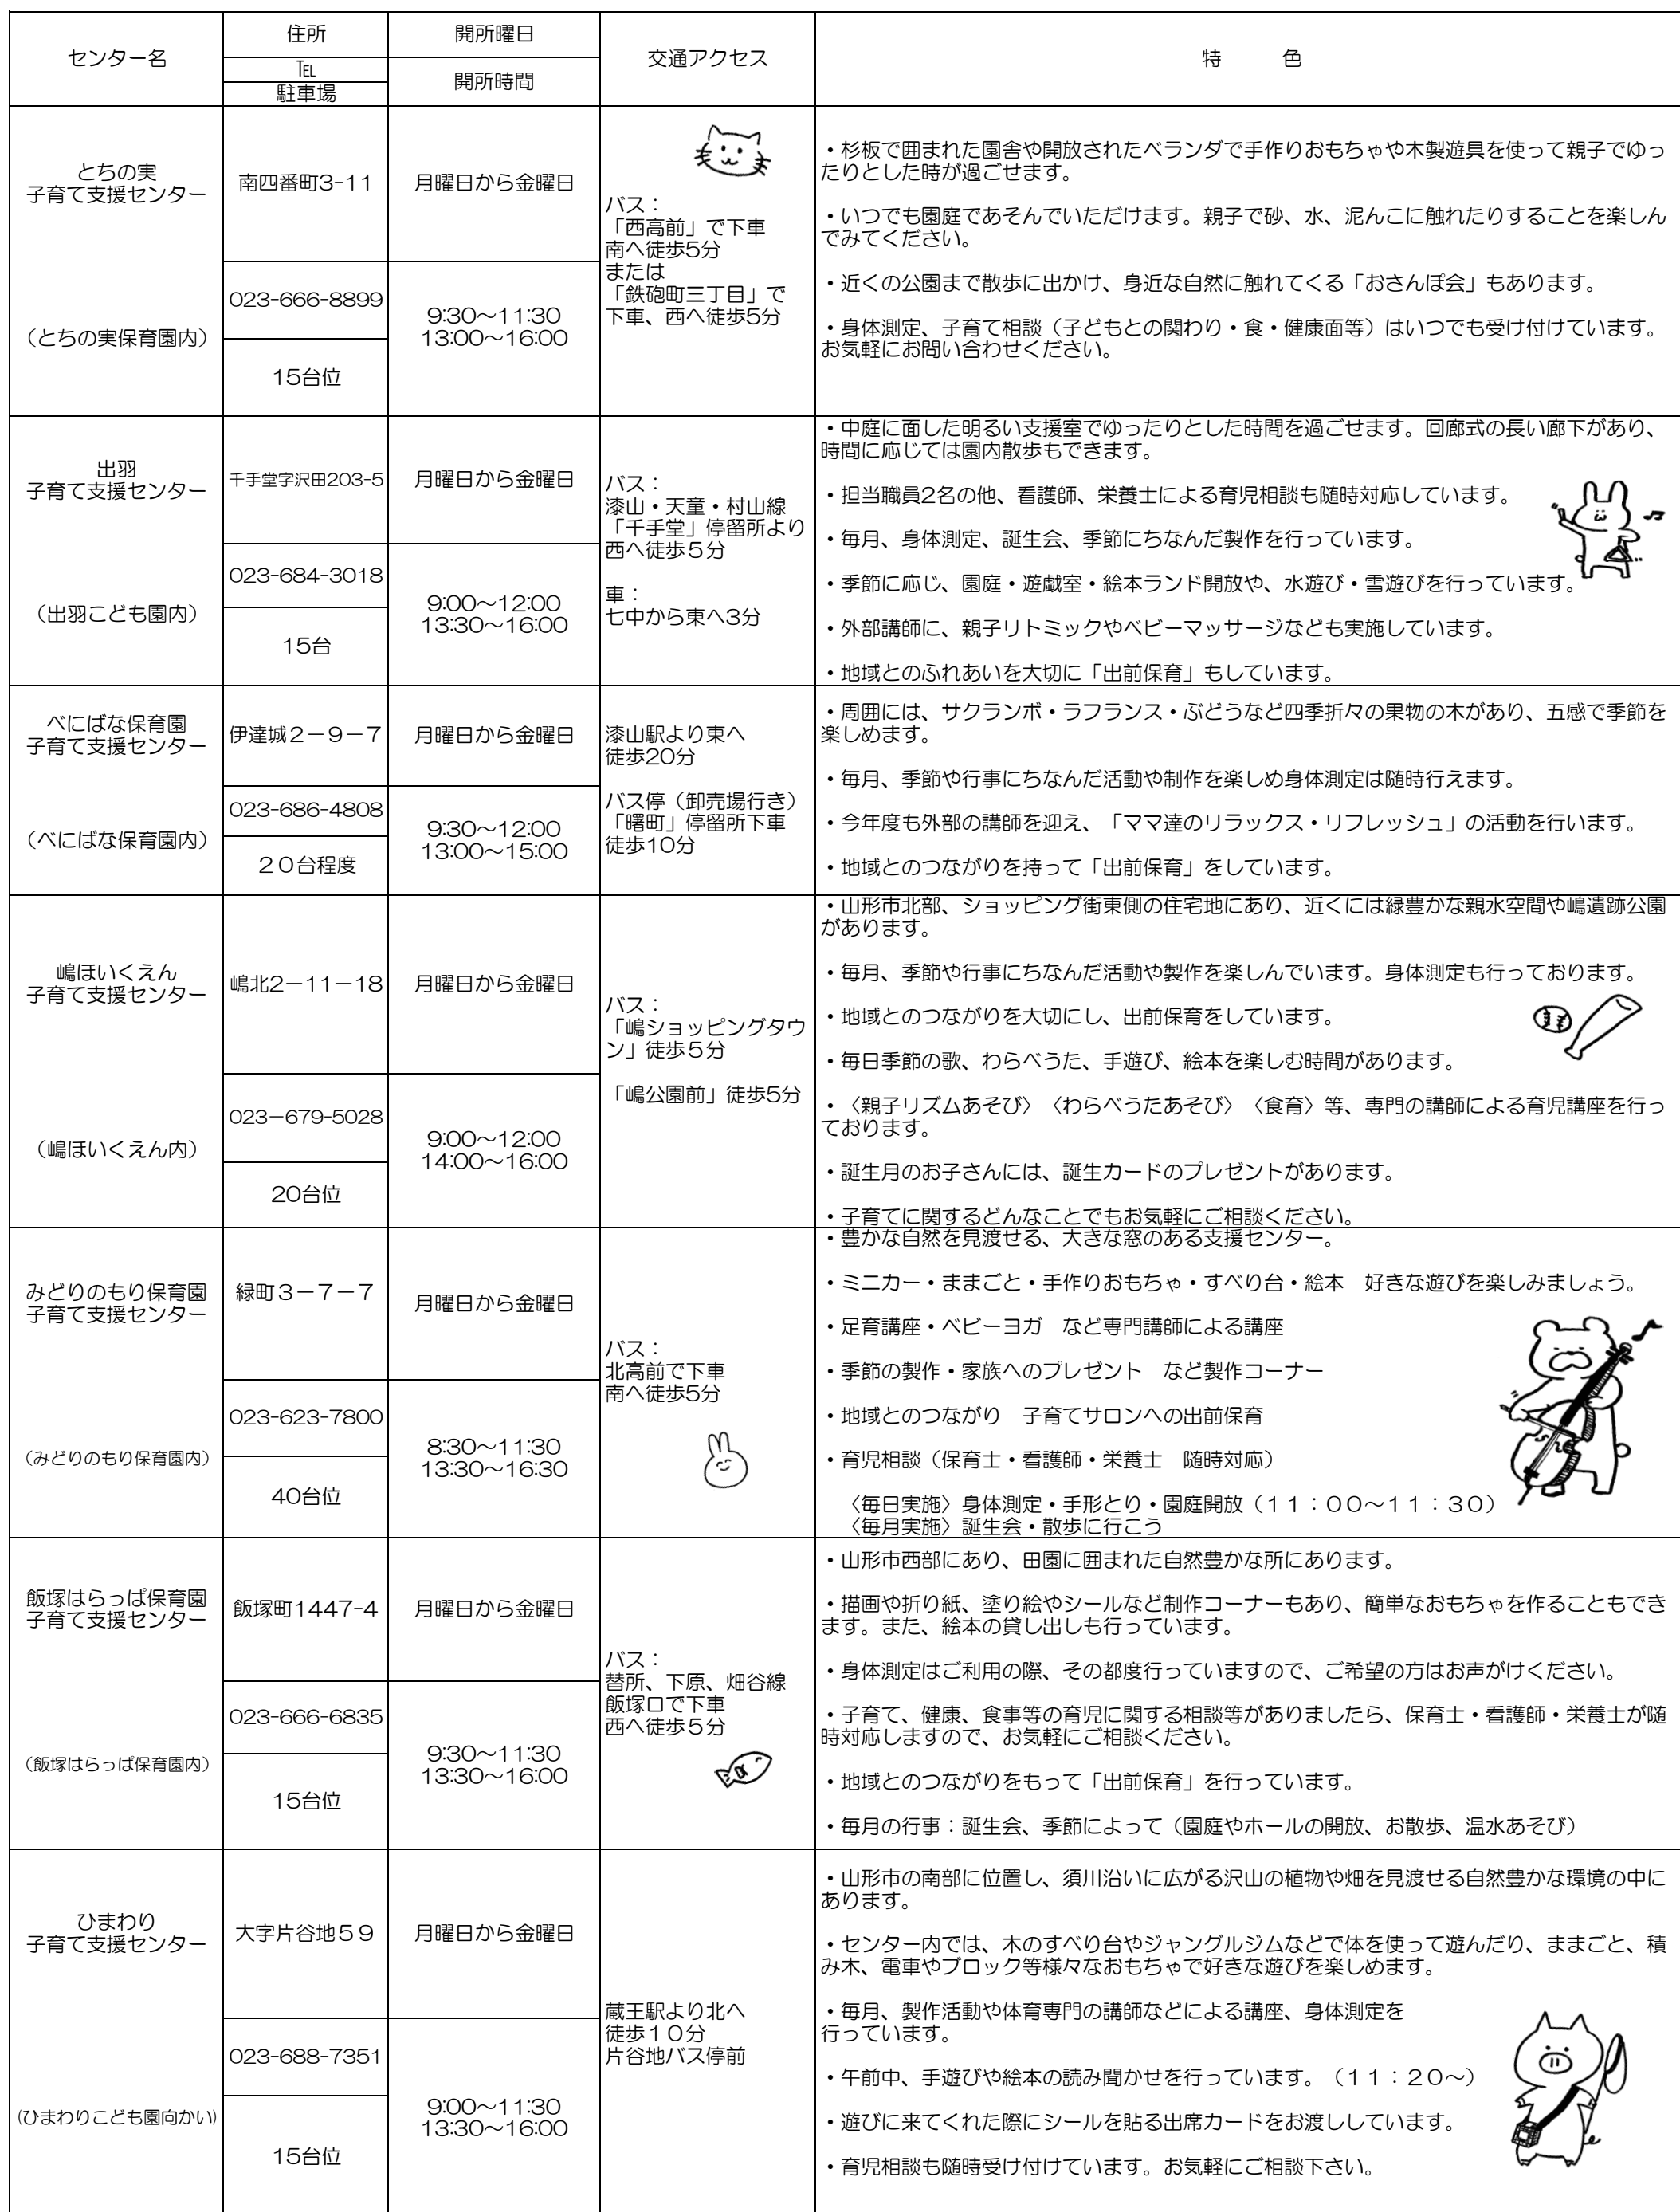 センター名
住所
℡
駐車場
開所曜日
開所時間
交通アクセス
特　　色
とちの実
子育て支援センター
（とちの実保育園内）
南四番町3-11
023-666-8899
15台位
月曜日から金曜日
9:30～11:30
13:00～16:00
バス：
「西高前」で下車
南へ徒歩5分
または
「鉄砲町三丁目」で
下車、西へ徒歩5分
・杉板で囲まれた園舎や開放されたベランダで手作りおもちゃや木製遊具を使って親子でゆっ
たりとした時が過ごせます。
・いつでも園庭であそんでいただけます。親子で砂、水、泥んこに触れたりすることを楽しん
でみてください。
・近くの公園まで散歩に出かけ、身近な自然に触れてくる「おさんぽ会」もあります。
・身体測定、子育て相談（子どもとの関わり・食・健康面等）はいつでも受け付けています。
お気軽にお問い合わせください。
出羽
子育て支援センター
（出羽こども園内）
千手堂字沢田203-5
023-684-3018
15台
月曜日から金曜日
9:00～12:00
13:30～16:00
バス：
漆山・天童・村山線
「千手堂」停留所より
西へ徒歩５分
車：
七中から東へ3分
・中庭に面した明るい支援室でゆったりとした時間を過ごせます。回廊式の長い廊下があり、
時間に応じては園内散歩もできます。
・担当職員2名の他、看護師、栄養士による育児相談も随時対応しています。
・毎月、身体測定、誕生会、季節にちなんだ製作を行っています。
・季節に応じ、園庭・遊戯室・絵本ランド開放や、水遊び・雪遊びを行っています。
・外部講師に、親子リトミックやベビーマッサージなども実施しています。
・地域とのふれあいを大切に「出前保育」もしています。
べにばな保育園
子育て支援センター
（べにばな保育園内）
伊達城２－９－７
023-686-4808
２０台程度
月曜日から金曜日
9:30～12:00
13:00～15:00
漆山駅より東へ
徒歩20分
バス停（卸売場行き）
「曙町」停留所下車
徒歩10分
・周囲には、サクランボ・ラフランス・ぶどうなど四季折々の果物の木があり、五感で季節を
楽しめます。
・毎月、季節や行事にちなんだ活動や制作を楽しめ身体測定は随時行えます。
・今年度も外部の講師を迎え、「ママ達のリラックス・リフレッシュ」の活動を行います。
・地域とのつながりを持って「出前保育」をしています。
嶋ほいくえん
子育て支援センター
（嶋ほいくえん内）
嶋北2－11－18
023－679-5028
20台位
月曜日から金曜日
9:00～12:00
14:00～16:00
バス：
「嶋ショッピングタウ
ン」徒歩５分
「嶋公園前」徒歩5分
・山形市北部、ショッピング街東側の住宅地にあり、近くには緑豊かな親水空間や嶋遺跡公園
があります。
・毎月、季節や行事にちなんだ活動や製作を楽しんでいます。身体測定も行っております。
・地域とのつながりを大切にし、出前保育をしています。
・毎日季節の歌、わらべうた、手遊び、絵本を楽しむ時間があります。
・〈親子リズムあそび〉〈わらべうたあそび〉〈食育〉等、専門の講師による育児講座を行っ
ております。
・誕生月のお子さんには、誕生カードのプレゼントがあります。
・子育てに関するどんなことでもお気軽にご相談ください。
みどりのもり保育園
子育て支援センター
（みどりのもり保育園内）
緑町３－７－７
023-623-7800
40台位
月曜日から金曜日
8:30～11:30
13:30～16:30
バス：
北高前で下車
南へ徒歩5分
・豊かな自然を見渡せる、大きな窓のある支援センター。
・ミニカー・ままごと・手作りおもちゃ・すべり台・絵本　好きな遊びを楽しみましょう。
・足育講座・ベビーヨガ　など専門講師による講座
・季節の製作・家族へのプレゼント　など製作コーナー
・地域とのつながり　子育てサロンへの出前保育
・育児相談（保育士・看護師・栄養士　随時対応）
〈毎日実施〉身体測定・手形とり・園庭開放（１１：００～１１：３０）
〈毎月実施〉誕生会・散歩に行こう
飯塚はらっぱ保育園
子育て支援センター
（飯塚はらっぱ保育園内）
飯塚町1447-4
023-666-6835
15台位
月曜日から金曜日
9:30～11:30
13:30～16:00
バス：
替所、下原、畑谷線
飯塚口で下車
西へ徒歩５分
・山形市西部にあり、田園に囲まれた自然豊かな所にあります。
・描画や折り紙、塗り絵やシールなど制作コーナーもあり、簡単なおもちゃを作ることもでき
ます。また、絵本の貸し出しも行っています。
・身体測定はご利用の際、その都度行っていますので、ご希望の方はお声がけください。
・子育て、健康、食事等の育児に関する相談等がありましたら、保育士・看護師・栄養士が随
時対応しますので、お気軽にご相談ください。
・地域とのつながりをもって「出前保育」を行っています。
・毎月の行事：誕生会、季節によって（園庭やホールの開放、お散歩、温水あそび）
ひまわり
子育て支援センター
(ひまわりこども園向かい)
大字片谷地５９
023-688-7351
15台位
月曜日から金曜日
9:00～11:30
13:30～16:00
蔵王駅より北へ
徒歩１０分
片谷地バス停前
・山形市の南部に位置し、須川沿いに広がる沢山の植物や畑を見渡せる自然豊かな環境の中に
あります。
・センター内では、木のすべり台やジャングルジムなどで体を使って遊んだり、ままごと、積
み木、電車やブロック等様々なおもちゃで好きな遊びを楽しめます。
・毎月、製作活動や体育専門の講師などによる講座、身体測定を
行っています。
・午前中、手遊びや絵本の読み聞かせを行っています。（１１：２０～）
・遊びに来てくれた際にシールを貼る出席カードをお渡ししています。
・育児相談も随時受け付けています。お気軽にご相談下さい。